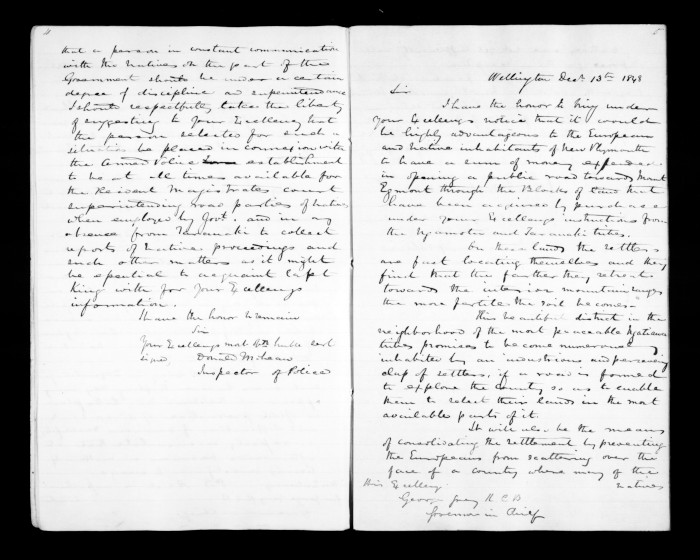 4
that a person in constant communication
with the Natives on the part of the
Government should be under a certain
degree of discipline and superintendance
I should respectfully take the liberty
of suggesting to Your Excellency that
the person selected for such a
situation be placed in connexion with
the Armed Police establishment
to be at all times available for
the Resident Magistrates Court
superintending road parties of Natives
when employed by Govt. and in my
absence from Taranaki to collect
reports of Native proceedings and
such other matters as it might
be essential to acquaint Capt
King with for Your Excellencys
information.
I have the honor to remain
Sir
Your Excellencys most obt humble servt
signed Donald McLean
Inspector of Police
5
Wellington Decr 13th 1848
Sir
I have the honor to bring under
Your Excellencys notice that it would
be highly advantageous to the European
and Native inhabitants of New Plymouth
to have a sum of money expended
in opening a public road towards Mount
Egmont through the Blocks of land that
have been acquired by purchase
under Your Excellencys instructions from
the Ngamotu and Taranaki tribes.
On these lands the settlers
are fast locating themselves and they
find that the farther they retreat
towards the interior mountain ranges
the more fertile the soil becomes.
This beautiful district in the
neighborhood of the most peaceable Ngatiawa
tribes promises to become numerously
inhabited by an industrious and persevering
class of settlers, if a road is formed
to explore the country so as to enable
them to select their lands in the most
available parts of it.
It will also be the means
of consolidating the settlement by preventing
the Europeans from scattering over the
face of a country where many of the
His Excellency natives
George Grey K.C.B
Governor in Chief